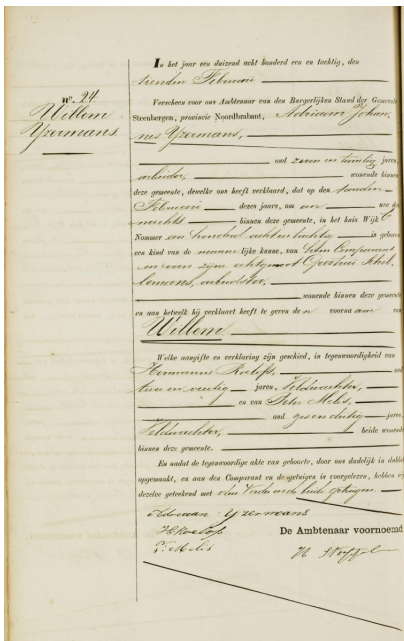 nº. 24.
Willem
Yzermans
In het jaar een duizend acht honderd een en tachtig, den
tienden Februarij
Verscheen voor ons Ambtenaar van den Burgerlijken Stand der Gemeente
Steenbergen, provincie Noordbrabant, Adriaan Johan,
nes Yzermans,
oud zeven en twintig jaren,
arbeider, wonende binnen
deze gemeente, dewelke ons heeft verklaard, dat op den tienden
Februarij dezes jaars, om een ure des
nachts binnen deze gemeente, in het huis Wijk C
Nommer een honderd acht en tachtig is geboren
een kind van de mannelijke kunne, van hem Comparant
en van zijne echtgenoot
lemans, arbeidster,
wonende binnen deze gemeente
en aan hetwelk hij verklaart heeft te geven den voornaam van
Willem
Welke aangifte en verklaring zijn geschied, in tegenwoordigheid van
Hermanus Roelofs, oud
jaren, Veldwachter,
en van Peter Melis,
oud jaren,
Veldwachter, beide wonende
binnen deze gemeente.
En nadat de tegenwoordige akte van geboorte, door ons dadelijk in dubbel
opgemaakt, en aan den Comparant en de getuigen is voorgelezen, hebben wij
dezelve geteekend met den Vader en de beide getuigen.
Adriaan Yzermans
H Roelofs
P. Melis
De Ambtenaar voornoemd